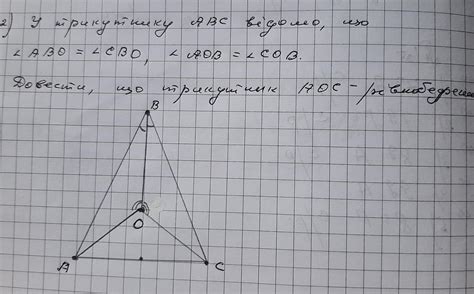 2) У трикутнику ABC відомо, що
∠ABO = ∠CBO, ∠AOB = ∠COB.
Довести, що трикутник AOC - рівнобедрений
B
O
A
C